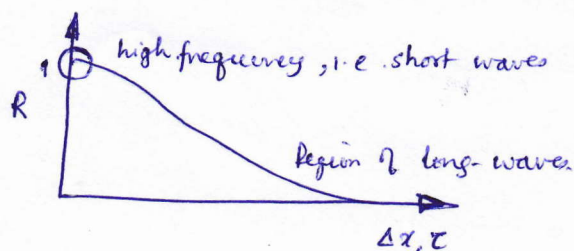 high frequency, i.e. short waves
1
R
Region of long-waves
Δx, τ